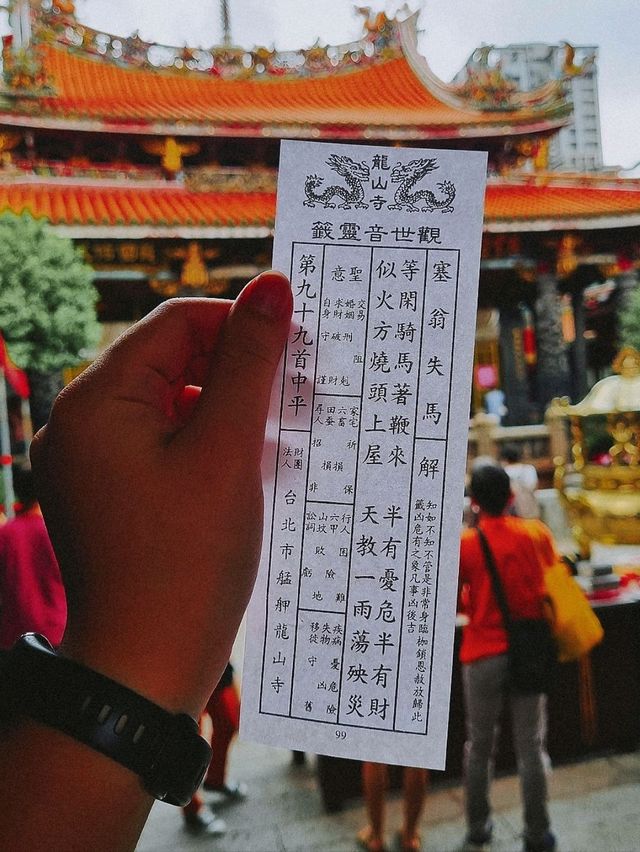 龍山寺
觀世音靈籤
塞翁失馬
解
知如不知不管是非常身臨枷鎖恩赦放歸此
籤凶危有之象凡事凶後吉
等閑騎馬著鞭來 半有憂危半有財
似火方燒頭上屋 天教一雨蕩殃災
聖意
交易 阻
婚姻 刑尅
求財 破財
自身 守謹
家宅 祈保
六畜 損
田蚕 損
尋人 招非
行人 困難
六甲 險
山坟 敗地
訟詞 虧
疾病 憂危險
失物 凶
移徙 守舊
第九十九首中平
財團
法人
台北市艋舺龍山寺
99